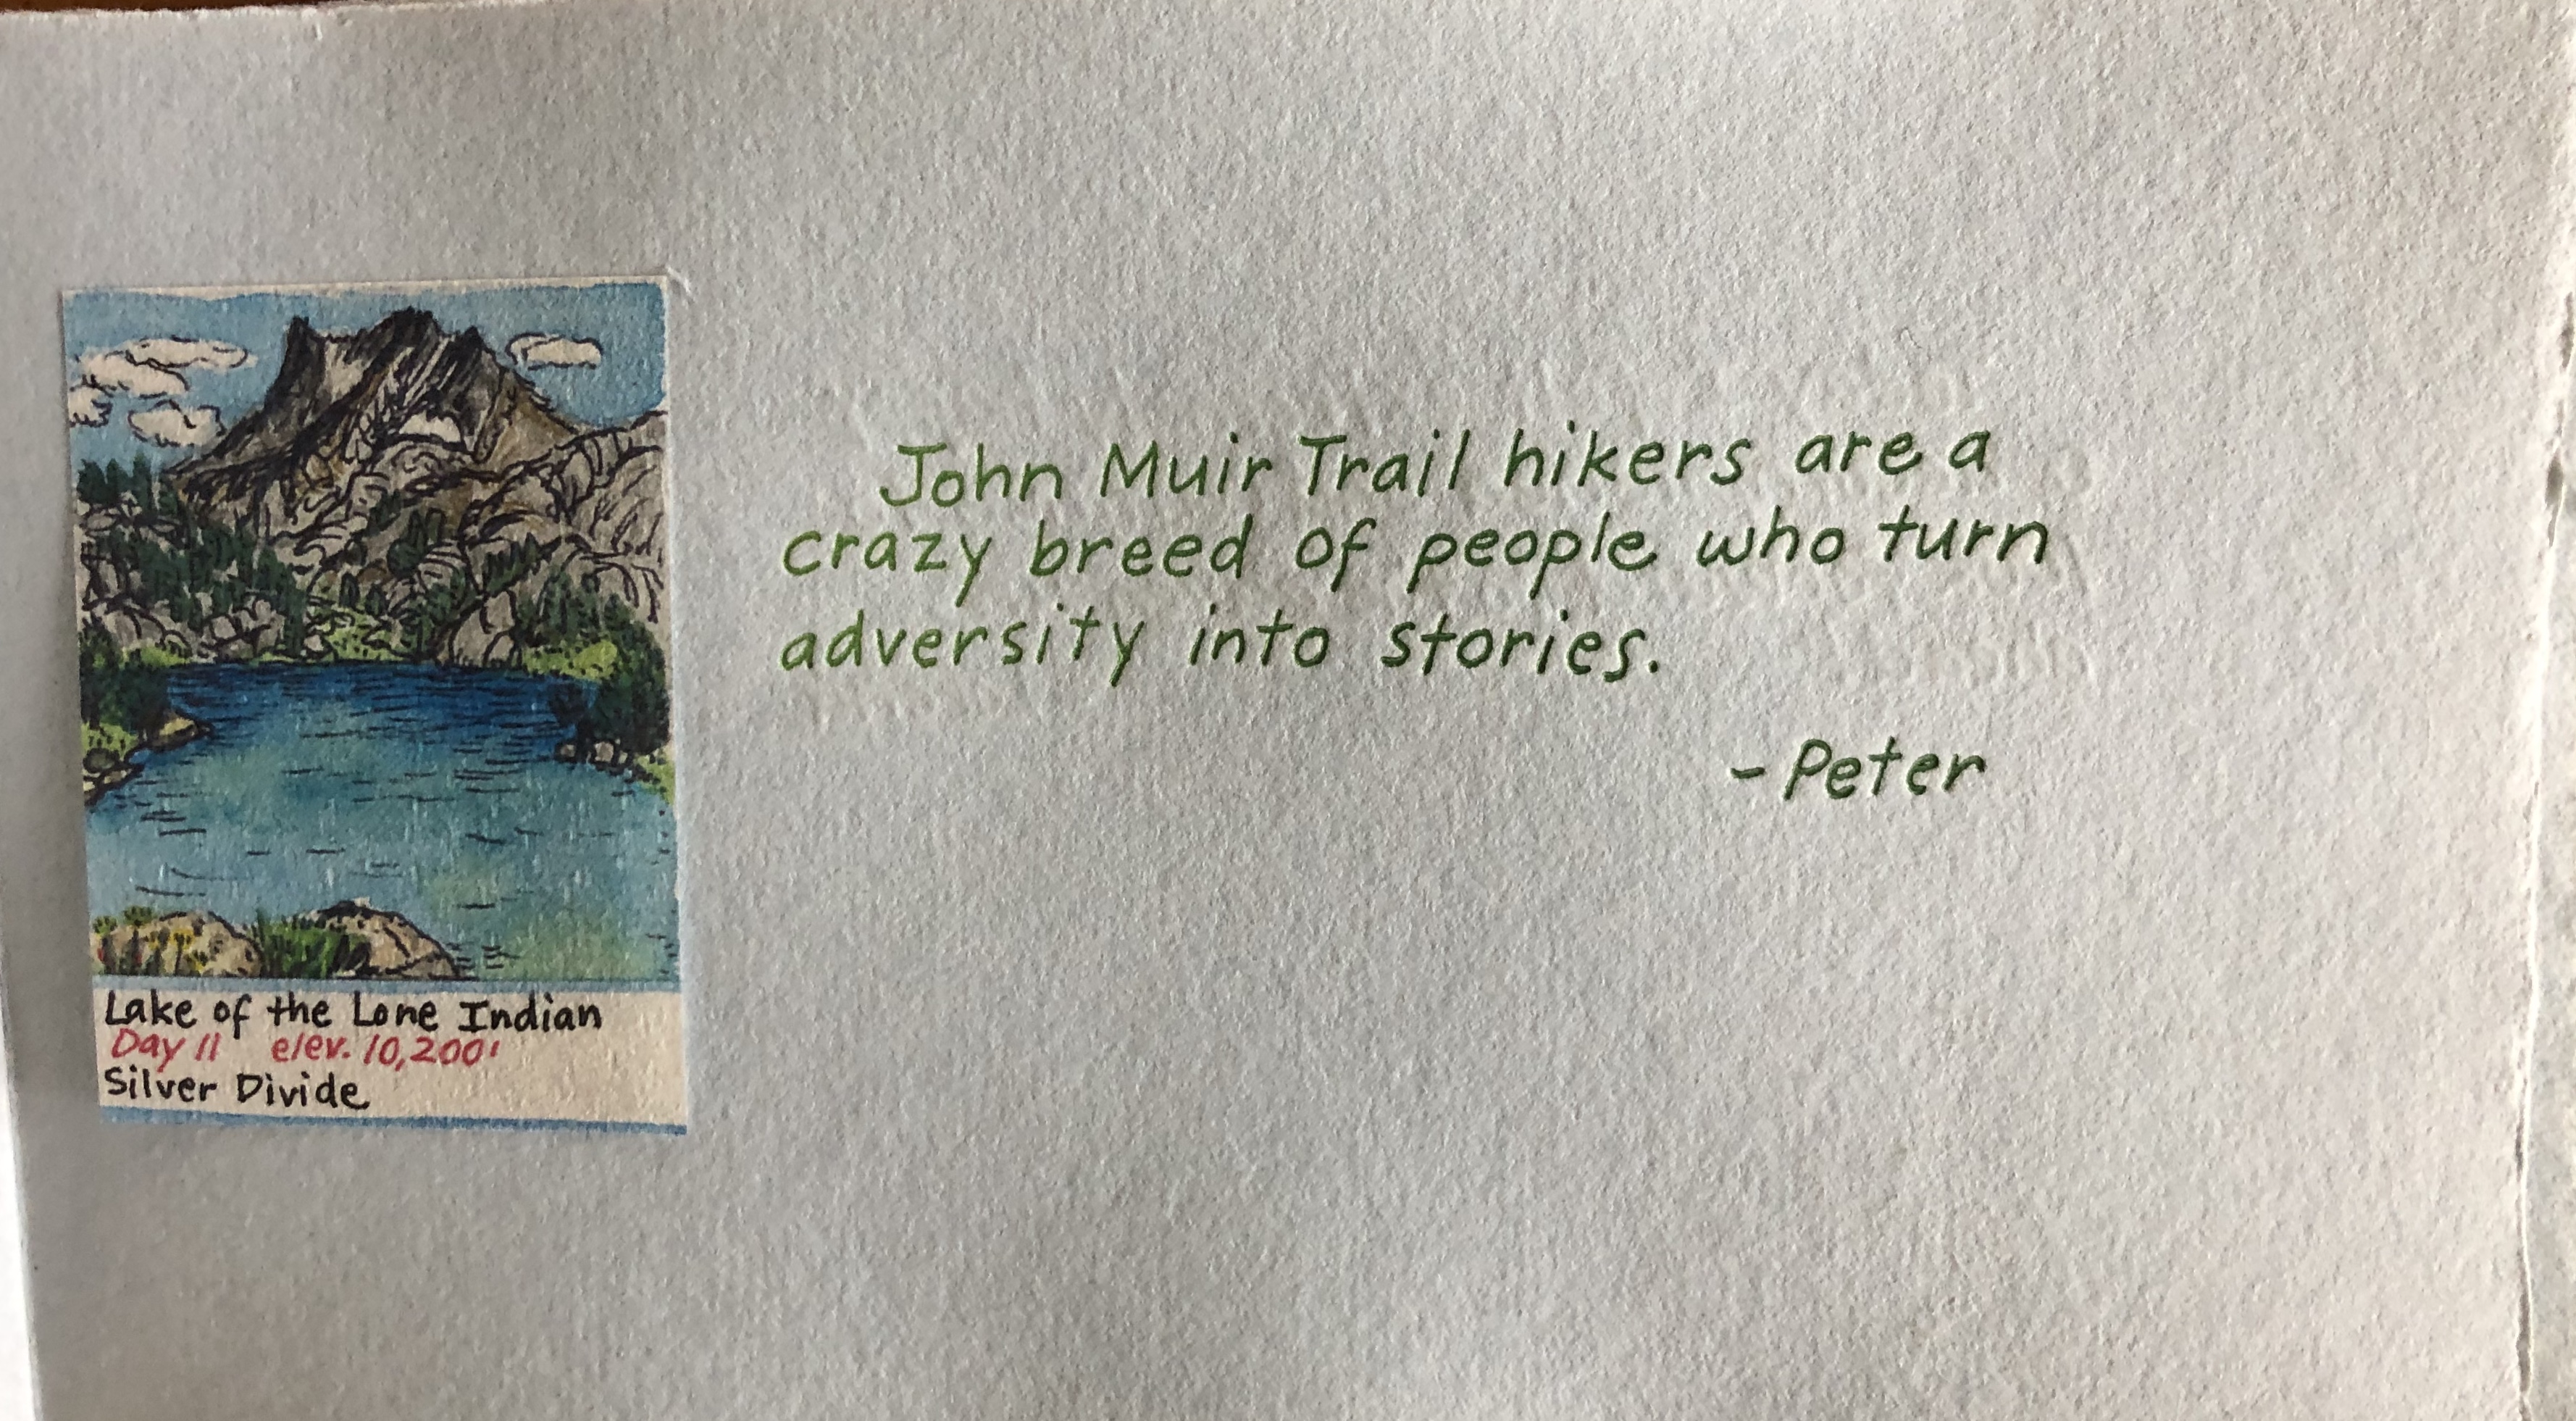 John Muir Trail hikers are a
crazy breed of people who turn
adversity into stories.
- Peter
Lake of the Lone Indian
Day 11 elev. 10,200'
Silver Divide